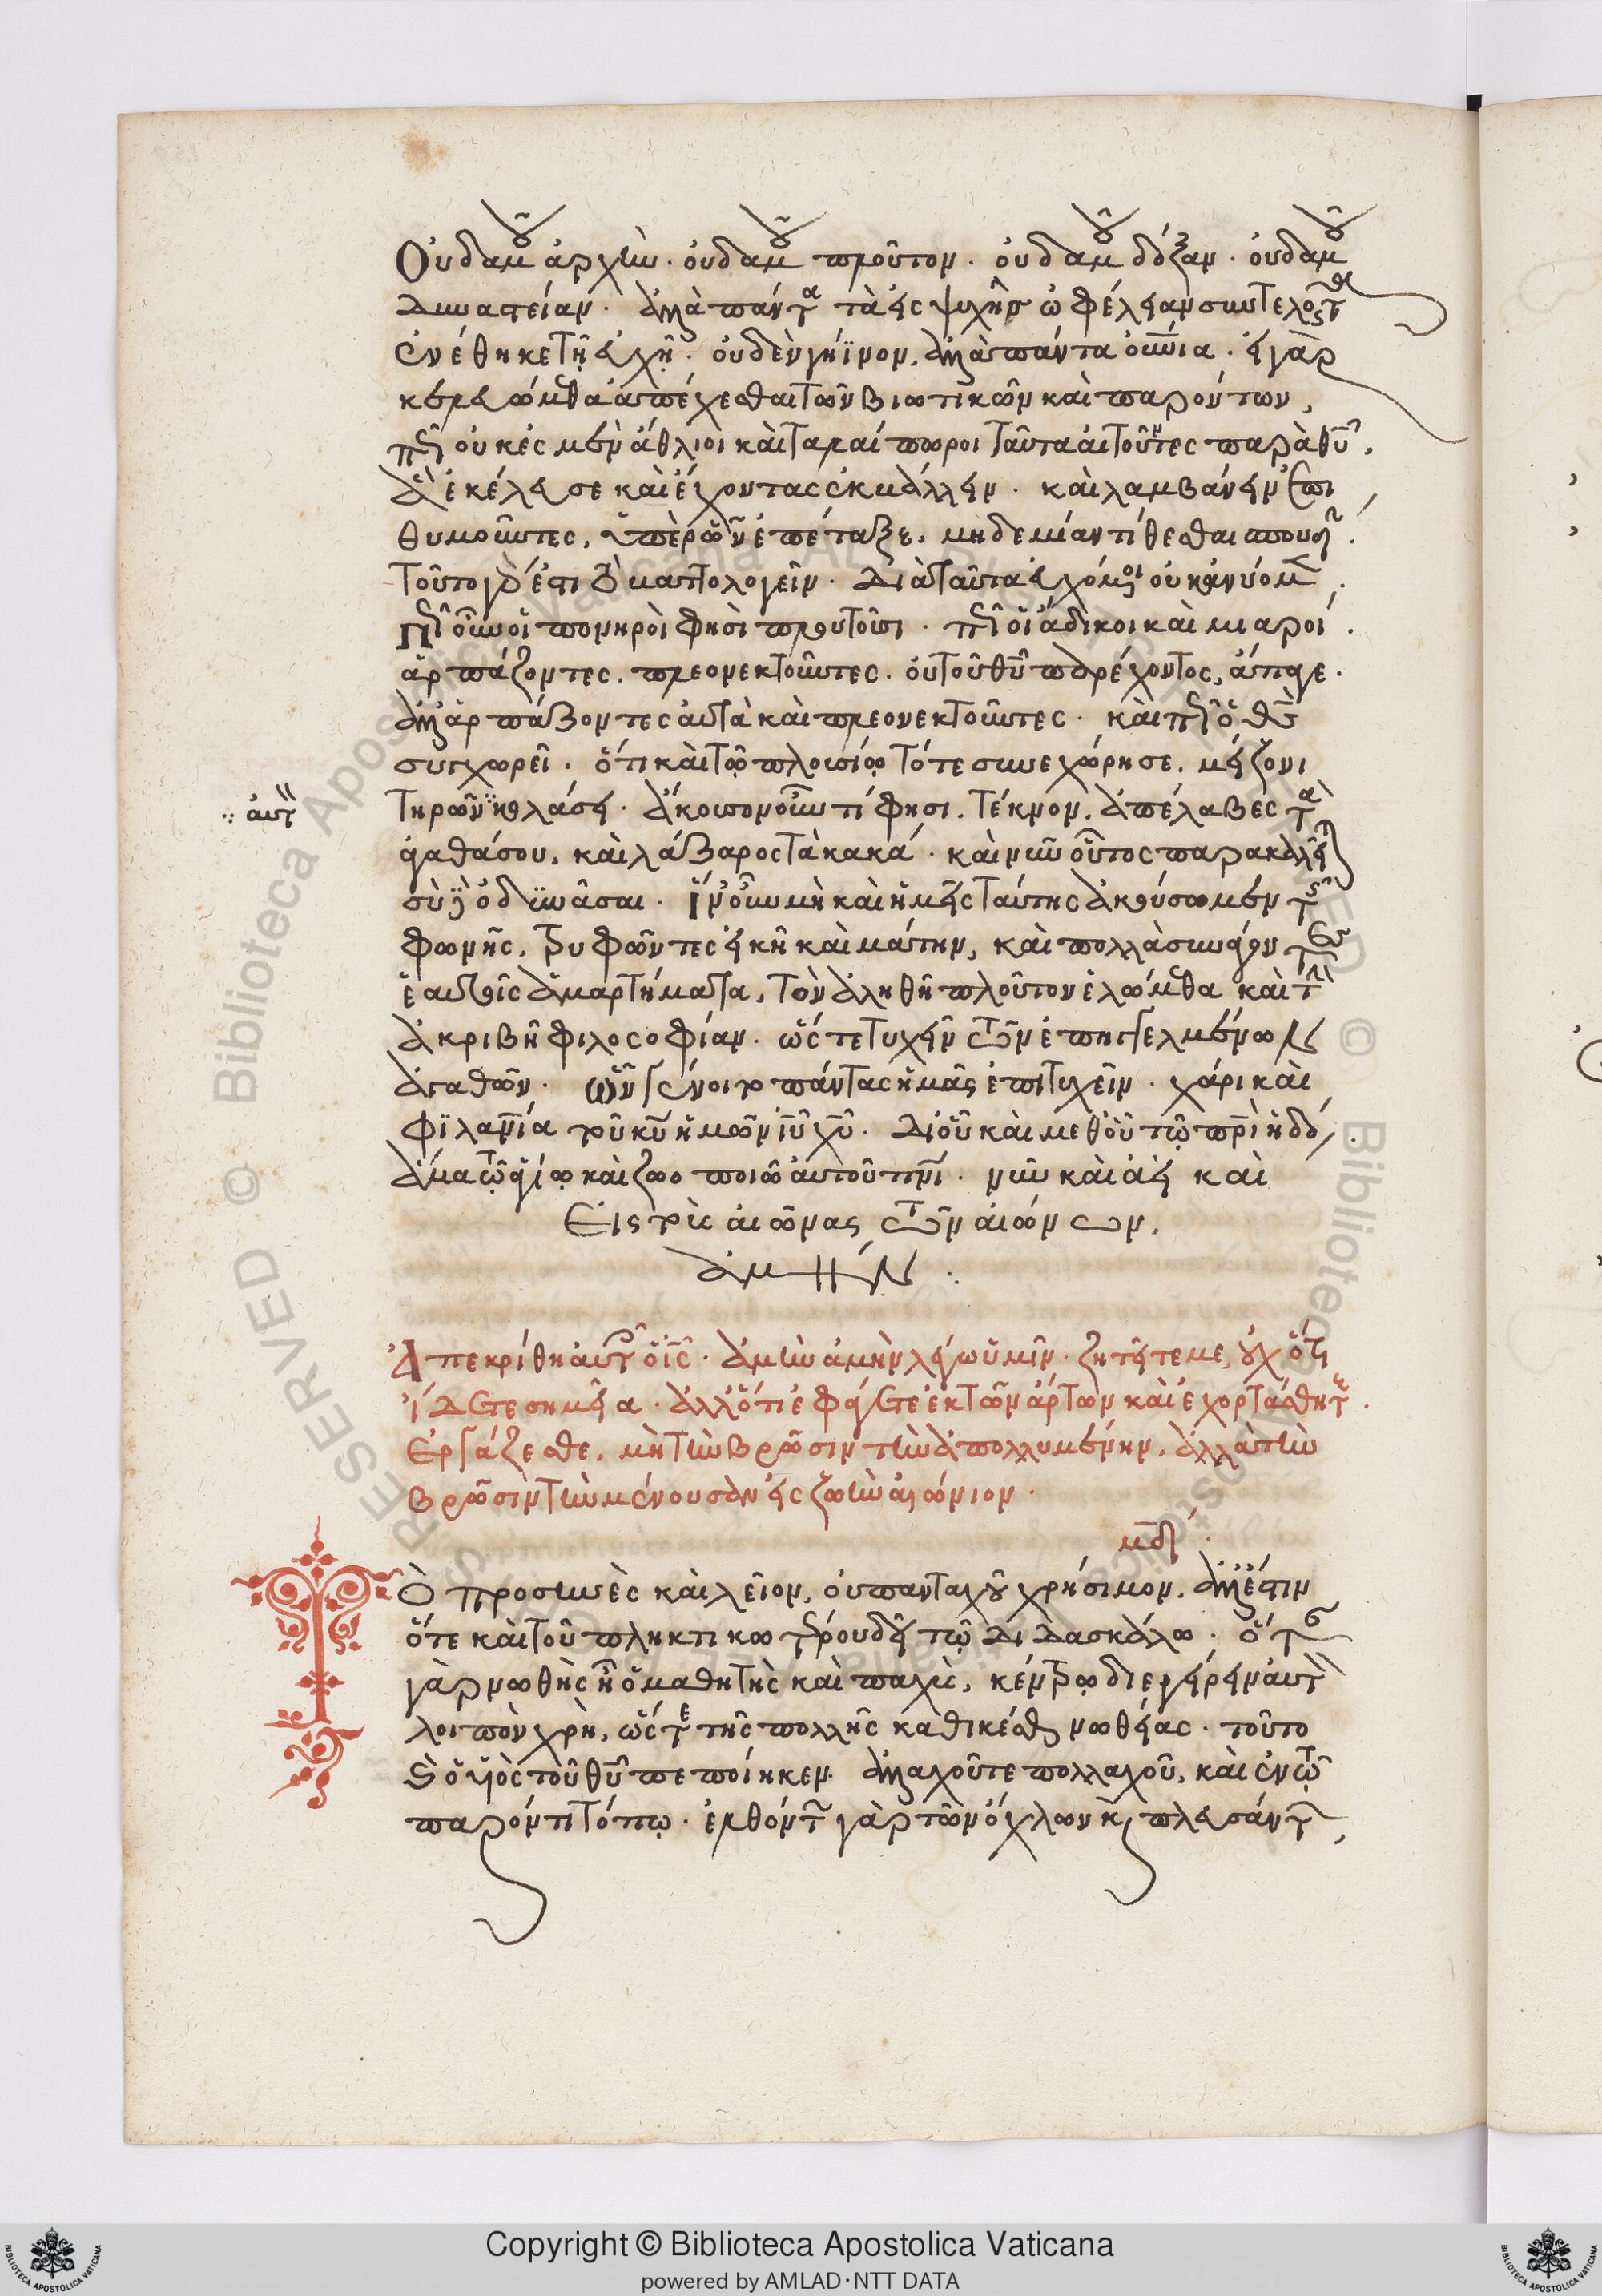 Οὐδαμοῦ ἀρχὴν· οὐδαμοῦ πλοῦτον· οὐδαμοῦ δόξαν· οὐδαμοῦ
δυναστείαν· ἀλλὰ πάντα τὰ εἰς ψυχῆς ὠφέλειαν συντελοῦντα
ἐνέθηκε τῇ εὐχῇ· οὐδὲν γήϊνον, ἀλλὰ πάντα οὐράνια· εἰ γὰρ
κελευόμεθα ἀπέχεσθαι τῶν βιωτικῶν καὶ παρόντων,
πῶς οὐκ ἐσμὲν ἄθλιοι καὶ ταλαίπωροι ταῦτα αἰτοῦντες παρὰ θῦ,
ἃ ἐκέλευσε καὶ ἔχοντας ἐκβάλλειν· καὶ λαμβάνειν ἐπι
θυμοῦντες, ὑπὲρ ὧν ἐπέταξε, μηδεμίαν τίθεσθαι σπουδήν·
Τοῦτο γάρ ἐστι βαττολογεῖν· Διὰ ταῦτα εὐχόμενοι οὐκ ἀνύομεν·
Πῶς οὖν οἱ πονηροὶ φησὶ πλουτοῦσι· πῶς οἱ ἄδικοι καὶ μιαροί·
ἁρπάζοντες· πλεονεκτοῦντες· οὐ τοῦ θῦ παρέχοντος, ἄπαγε·
ἀλλ' ἁρπάζοντες αὐτὰ καὶ πλεονεκτοῦντες· καὶ πῶς ὁ θς
συγχωρεῖ· ὅτι καὶ τῷ πλουσίῳ τότε συνεχώρησε, μείζονι
∴ αὐτὸν
τηρῶν κολάσει· ἄκουσον οὖν τί φησι· Τέκνον, ἀπέλαβες τὰ
ἀγαθά σου, καὶ λάζαρος τὰ κακά· καὶ νῦν οὗτος παρακαλεῖται
σὺ δὲ ὀδυνᾶσαι· ἵν' οὖν μὴ καὶ ἡμεῖς ταύτης ἀκούσωμεν τῆς
φωνῆς, τρυφῶντες εἰκῆ καὶ μάτην, καὶ πολλὰ συνάγοντες
ἑαυτοῖς ἁμαρτήματα, τὸν ἀληθῆ πλοῦτον ἑλώμεθα καὶ τὴν
ἀκριβῆ φιλοσοφίαν· ὥστε τυχεῖν τῶν ἐπηγγελμένων
ἀγαθῶν· ὧν γένοιτο πάντας ἡμᾶς ἐπιτυχεῖν· χάριτι καὶ
φιλανία τοῦ κῦ ἡμῶν ἰῦ χῦ· Δι' οὗ καὶ μεθ' οὗ τῷ πρὶ ἡ δόξα·
ἅμα τῷ ἁγίῳ καὶ ζωοποιῷ αὐτοῦ πνι· νῦν καὶ ἀεὶ καὶ
Εἰς τοὺς αἰῶνας τῶν αἰώνων,
ἀμήν ∴
Ἀπεκρίθη αὐτοῖς ὁ ις· ἀμὴν ἀμὴν λέγω ὑμῖν· ζητεῖτέ με, οὐχ ὅτι
ἴδετε σημεῖα· ἀλλ' ὅτι ἐφάγετε ἐκ τῶν ἄρτων καὶ ἐχορτάσθητε·
Ἐργάζεσθε, μὴ τὴν βρῶσιν τὴν ἀπολλυμένην, ἀλλὰ τὴν
βρῶσιν τὴν μένουσαν εἰς ζωὴν αἰώνιον·
μδ·
Τὸ προσηνὲς καὶ λεῖον, οὐ πανταχοῦ χρήσιμον, ἀλλ' ἔστιν
ὅτε καὶ τοῦ πληκτικωτέρου δεῖ τῷ διδασκάλῳ· ὅταν
γὰρ νωθὴς ᾖ ὁ μαθητὴς καὶ παχὺς, κέντρῳ διεγείρειν αὐτὸν
λοιπὸν χρὴ, ὥστε τῆς πολλῆς καθικέσθαι νωθείας· τοῦτο
δὲ ὁ υἱὸς τοῦ θῦ πεποίηκεν· ἀλλαχοῦ τε πολλαχοῦ, καὶ ἐν τῷ
παρόντι τόπῳ· ἐλθόντων γὰρ τῶν ὄχλων καὶ